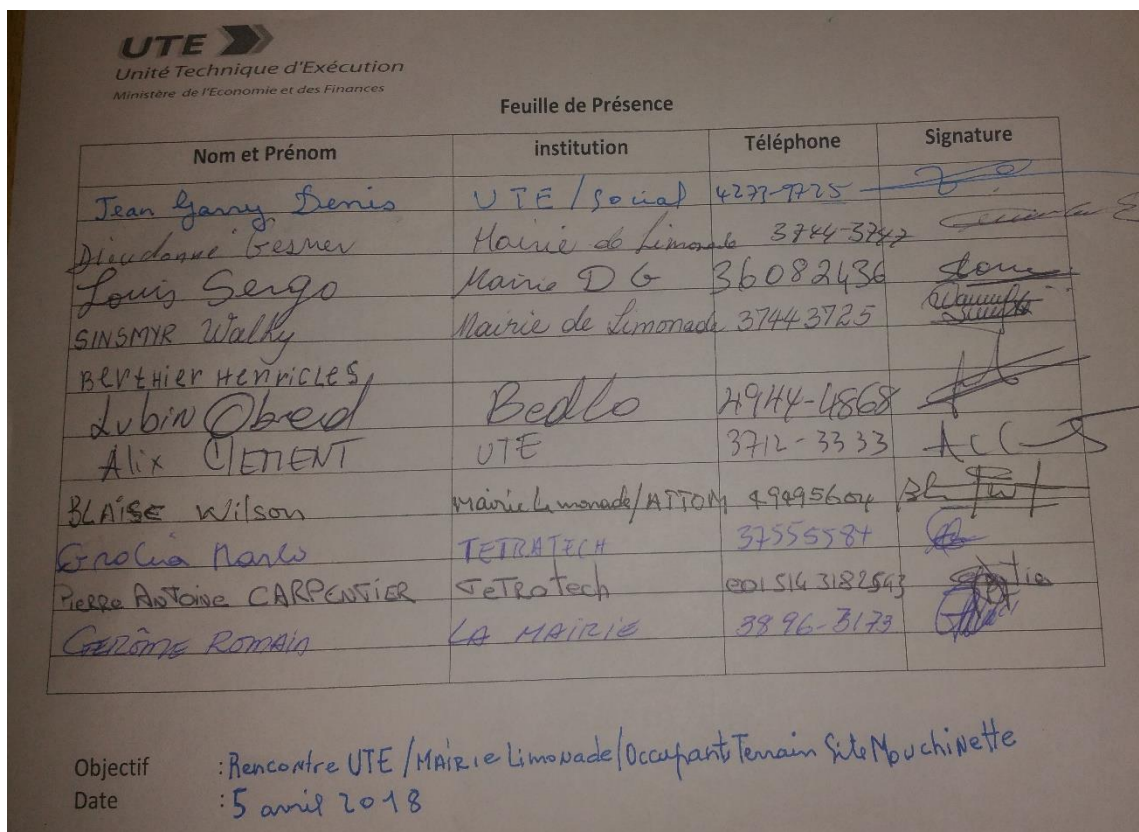 UTE
Unité Technique d'Exécution
Ministère de l'Economie et des Finances
Feuille de Présence
Nom et Prénom institution Téléphone Signature
Jean Garry Denis UTE/Social 4273-9725
Dieudonné Gesner Mairie de Limonade 3744-3747
Louis Sergo Mairie DG 36082436
SINSMYR Walky Mairie de Limonade 37443725
BERTHIER HENRICLES
Lubin Obed Bedlo 4944-4868
Alix CLEMENT UTE 3712-3333
BLAISE Wilson Mairie Limonade/ATTOM 49495604
TETRATECH
Pierre Antoine CARPENTIER TeTraTech 001 514 3182543
GERÔME ROMAIN LA MAIRIE 3896-3173
Objectif : Rencontre UTE/MAIRie Limonade/Occupant Terrain Site MouchiNette
Date : 5 avril 2018